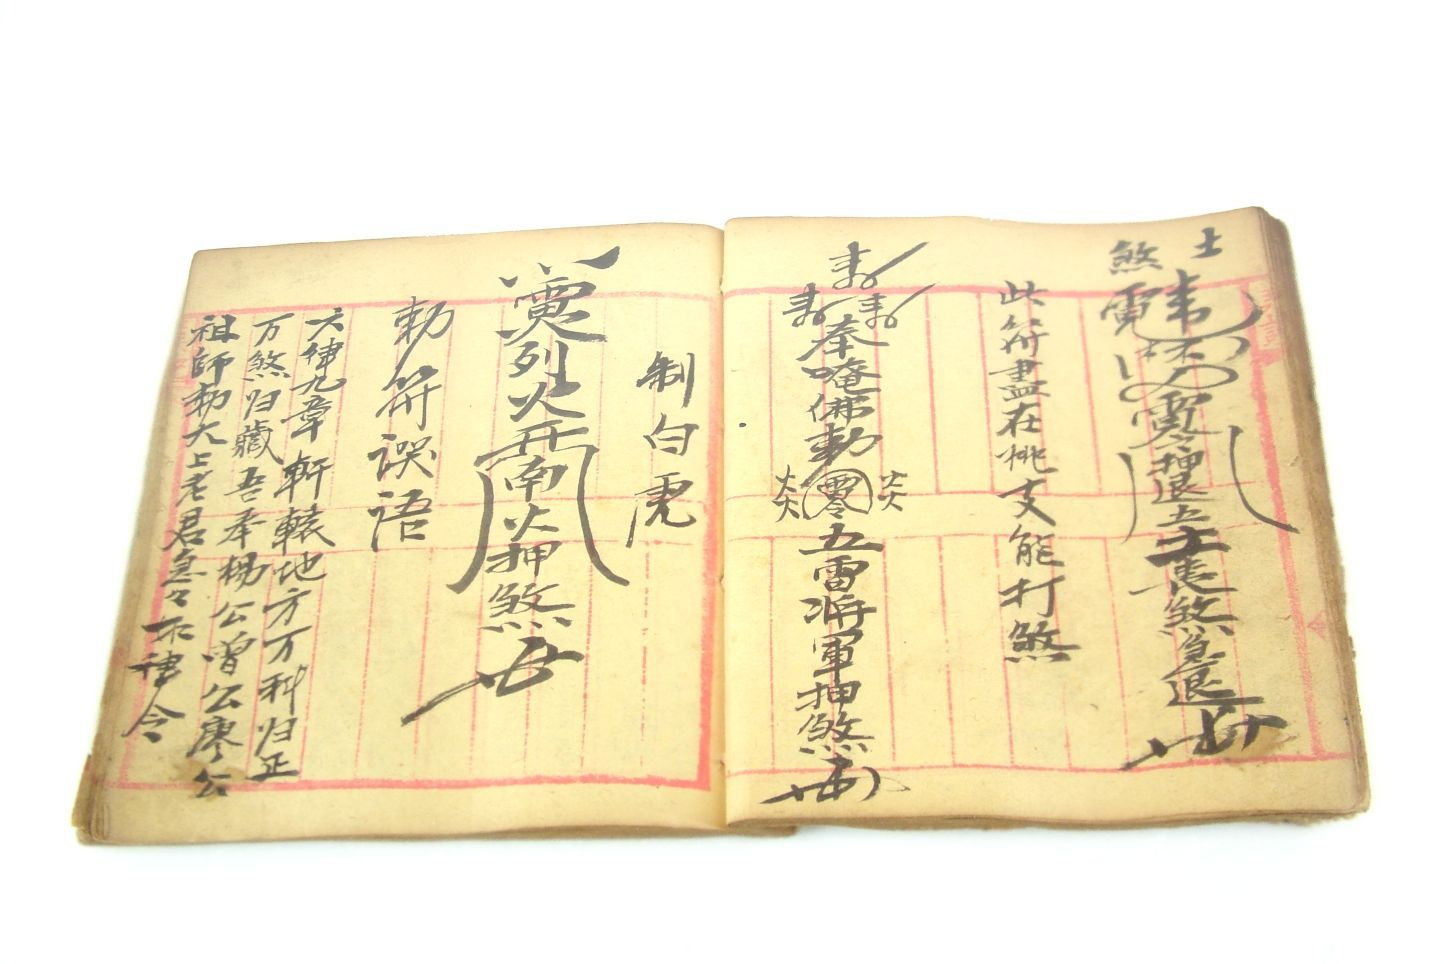 土
煞
押退土煞急退
此符盡在桃支能打煞
奉唵佛勅
五雷将軍押煞
制白虎
列火开南火押煞
勅符誤語
六律九章軒轅地方万科归正
万煞归藏吾奉楊公曾公廖公
祖師勅大上老君急々不律令